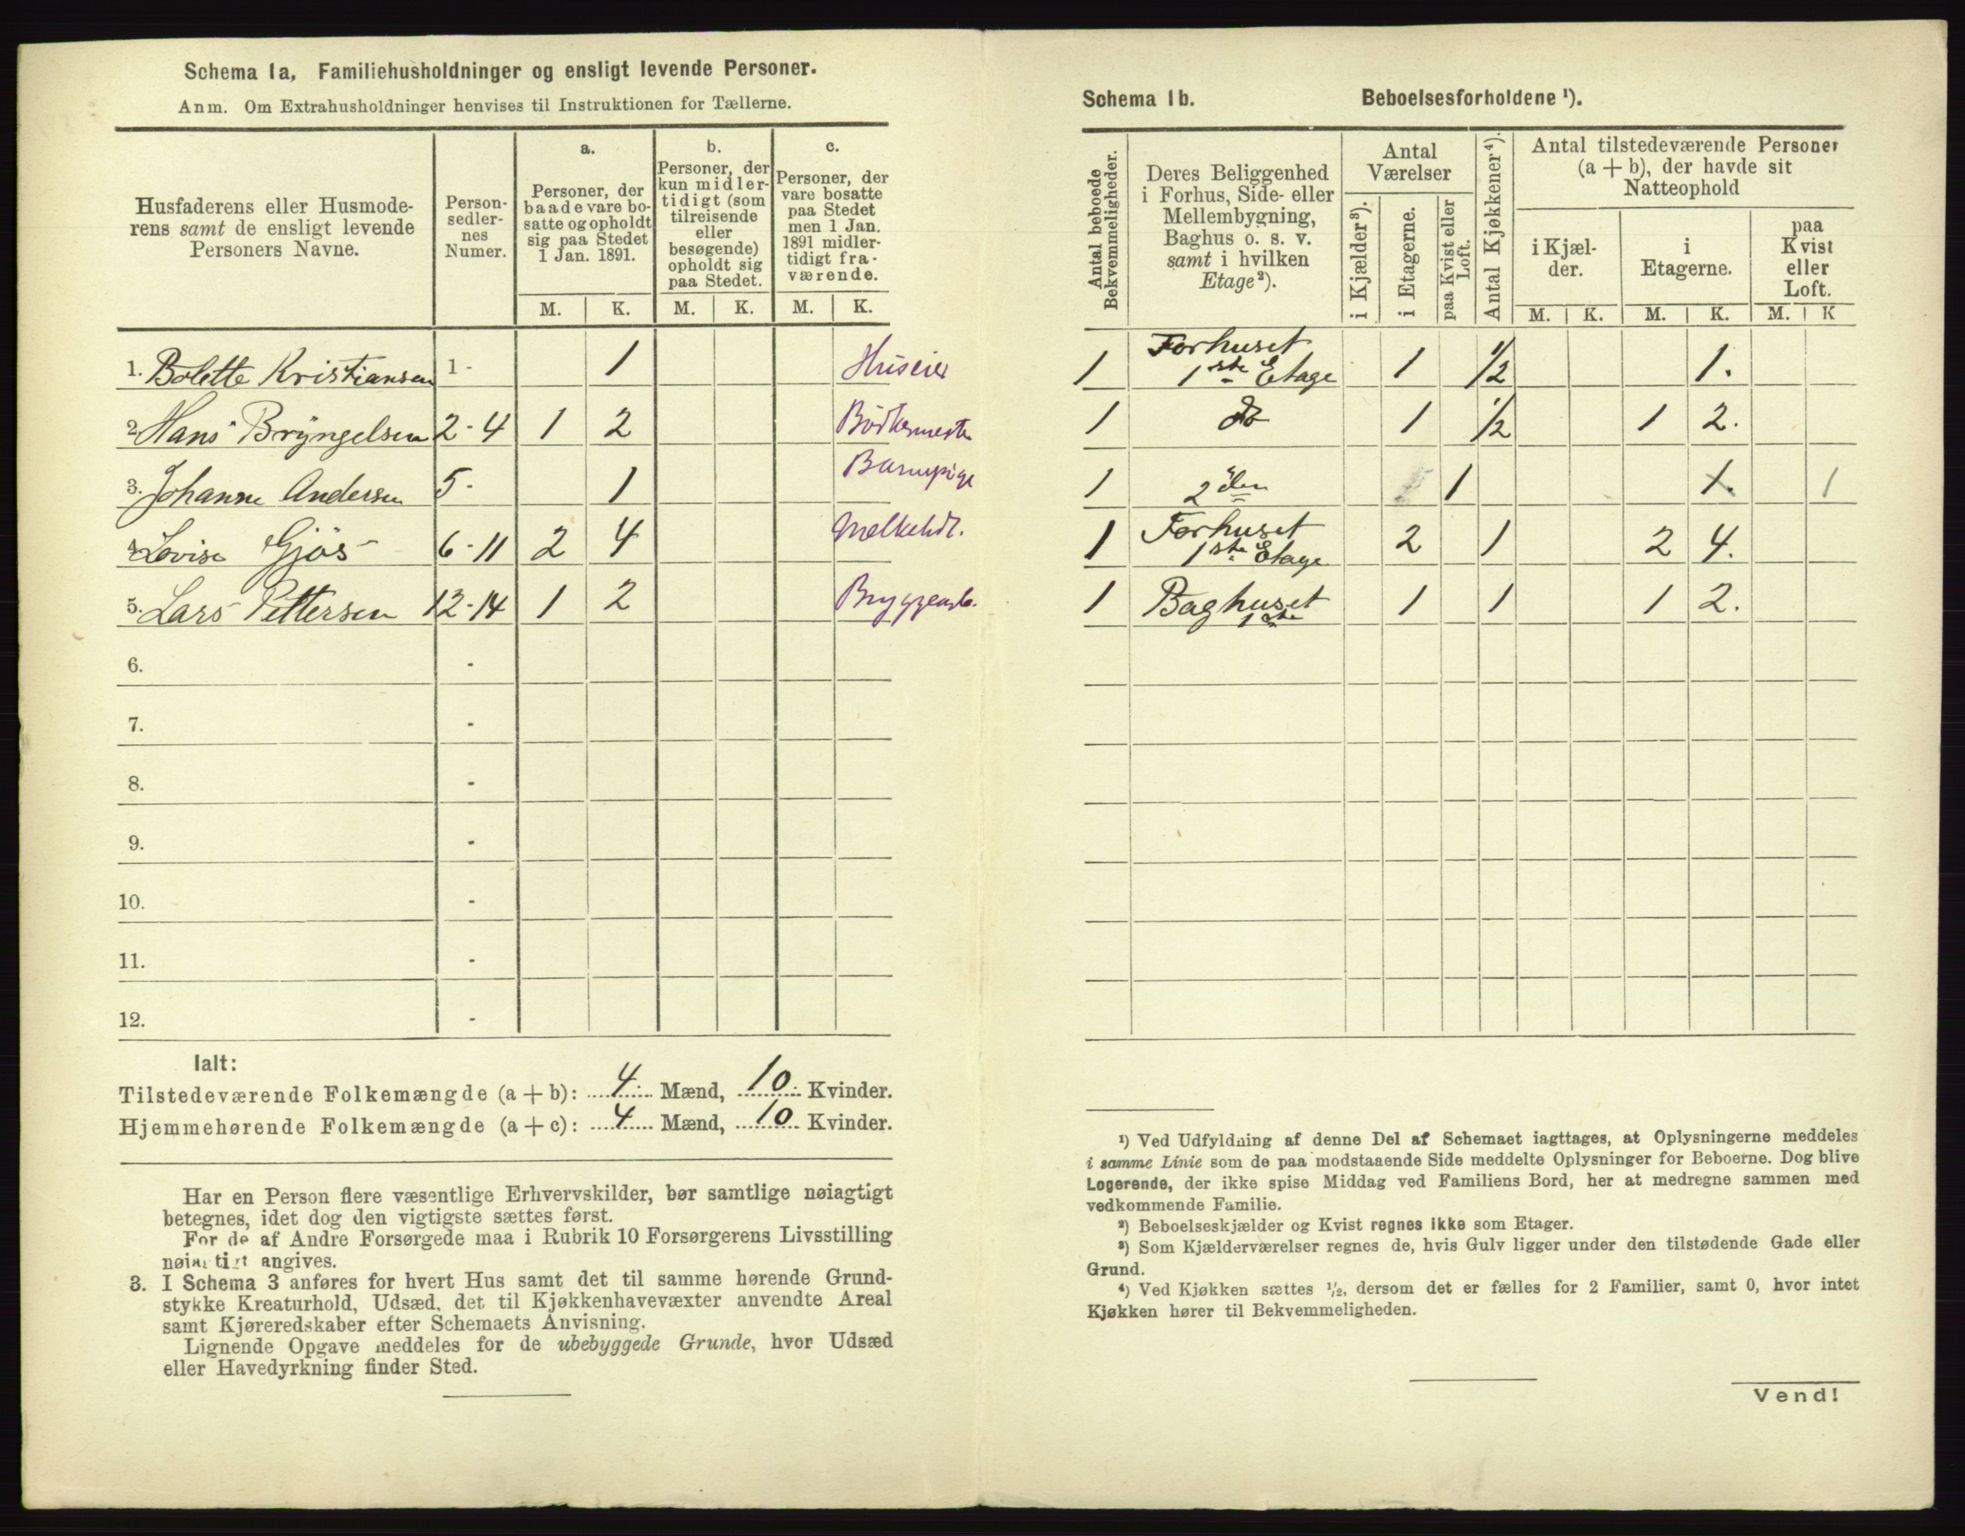 Schema 1a, Familiehusholdninger og ensligt levende Personer.
Anm. Om Extrahusholdninger henvises til Instruktionen for Tællerne.
Husfaderens eller Husmode-
rens samt de ensligt levende
Personers Navne.
Person-
sedler-
nes
Numer.
a.
Personer, der
baade vare bo-
satte og opholdt
sig paa Stedet
1 Jan. 1891.
b.
Personer, der
kun midler-
tidigt (som
tilreisende
eller
besøgende)
opholdt sig
paa Stedet.
c.
Personer, der
vare bosatte
paa Stedet
men 1 Jan.
1891 midler-
tidigt fra-
værende.
M. K. M. K. M. K.
1. Bolette Kristiansen 1 - 1 Huseier
2. Hans Bryngelsen 2 - 4 1 2 Bödkermester
3. Johanne Andersen 5 - 1 Barnepige
4. Lovise Gjös 6 - 11 2 4 Melkehdl.
5. Lars Pettersen 12 - 14 1 2 Bryggearb.
6. -
7. -
8. -
9. -
10. -
11. -
12. -
Ialt:
Tilstedeværende Folkemængde (a + b): 4 Mænd, 10 Kvinder.
Hjemmehørende Folkemængde (a + c): 4 Mænd, 10 Kvinder.
Har en Person flere væsentlige Erhvervskilder, bør samtlige nøiagtigt
betegnes, idet dog den vigtigste sættes først.
For de af Andre Forsørgede maa i Rubrik 10 Forsørgerens Livsstilling
nøiagtigt angives.
3. I Schema 3 anføres for hvert Hus samt det til samme hørende Grund-
stykke Kreaturhold, Udsæd, det til Kjøkkenhavevæxter anvendte Areal
samt Kjøreredskaber efter Schemaets Anvisning.
Lignende Opgave meddeles for de ubebyggede Grunde, hvor Udsæd
eller Havedyrkning finder Sted.
Schema 1b. Beboelsesforholdene ¹).
Antal beboede
Bekvemmeligheder.
Deres Beliggenhed
i Forhus, Side- eller
Mellembygning,
Baghus o. s. v.
samt i hvilken
Etage²).
Antal
Værelser
i Kjælder³).
i Etagerne.
paa Kvist eller
Loft.
Antal Kjøkkener⁴).
Antal tilstedeværende Personer
(a + b), der havde sit
Natteophold
i Kjæl-
der.
i
Etagerne.
paa
Kvist
eller
Loft.
M. K. M. K. M. K
1 Forhuset
1ste Etage 1 1/2 1.
1 do 1 1/2 1 2.
1 2den 1 1. 1
1 Forhuset
1ste Etage 2 1 2 4.
1 Baghuset
1ste 1 1 1 2.
¹) Ved Udfyldning af denne Del af Schemaet iagttages, at Oplysningerne meddeles
i samme Linie som de paa modstaaende Side meddelte Oplysninger for Beboerne. Dog blive
Logerende, der ikke spise Middag ved Familiens Bord, her at medregne sammen med
vedkommende Familie.
²) Beboelseskjælder og Kvist regnes ikke som Etager.
³) Som Kjælderværelser regnes de, hvis Gulv ligger under den tilstødende Gade eller
Grund.
⁴) Ved Kjøkken sættes ½, dersom det er fælles for 2 Familier, samt 0, hvor intet
Kjøkken hører til Bekvemmeligheden.
Vend!